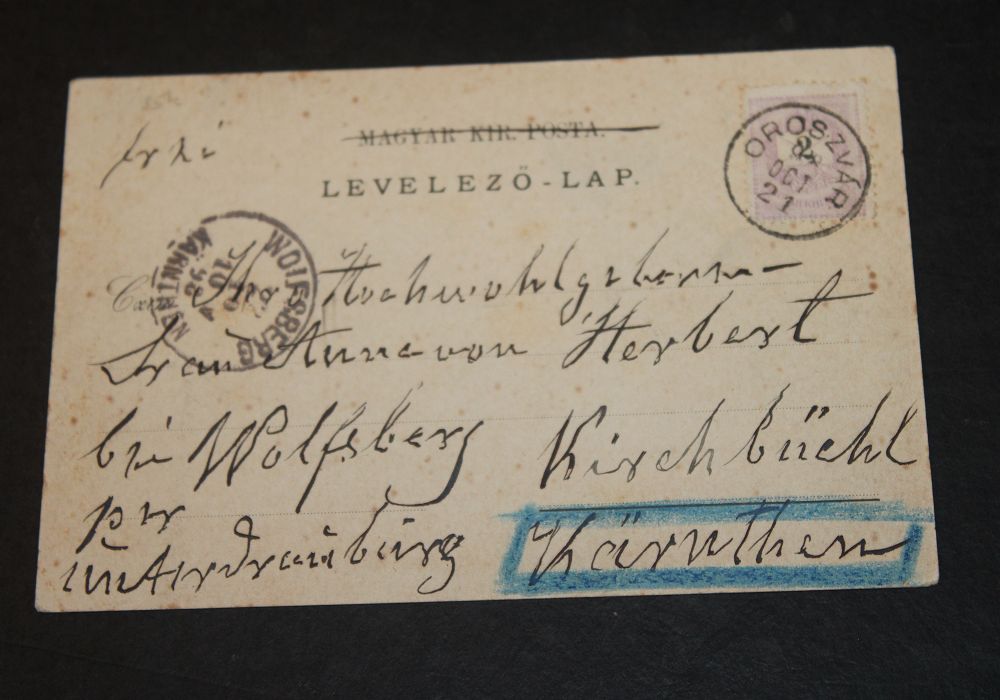 MAGYAR KIR. POSTA.
LEVELEZŐ-LAP.
OROSZVÁR
OCT
21
WOLFSBERG
KÄRNT
10
98
Ihr Hochwohlgeboren
Frau Anna von Herbert
bei Wolfsberg
Kirchbüchl
per
Unterdrauburg
Kärnthen